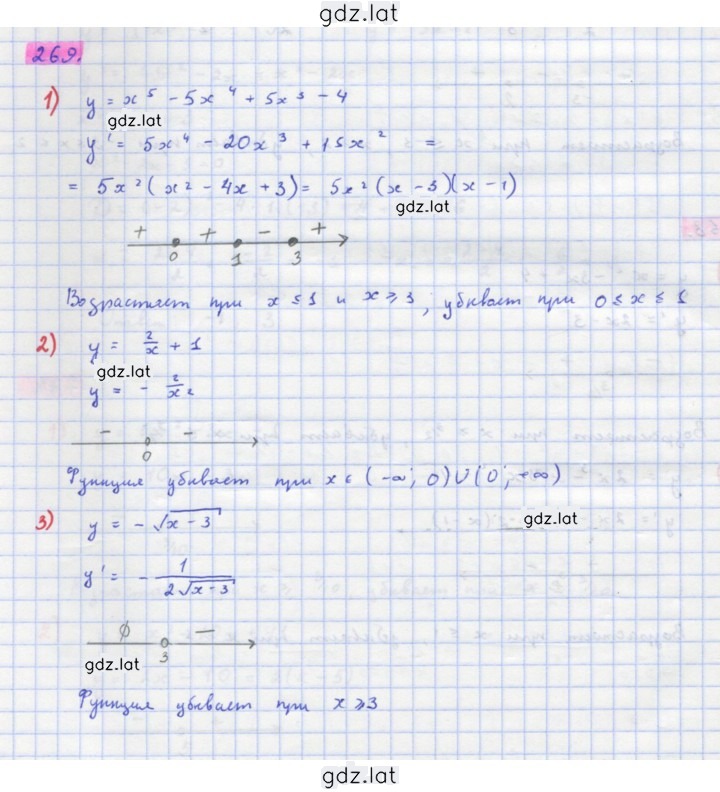 gdz.lat
269.
1) y = x⁵ - 5x⁴ + 5x³ - 4
gdz.lat
y' = 5x⁴ - 20x³ + 15x² =
= 5x²(x² - 4x + 3) = 5x²(x - 3)(x - 1)
gdz.lat
+ + - +
0 1 3
Возрастает при x ≤ 1 и x ⩾ 3, убывает при 0 ≤ x ≤ 1
2) y = 2/x + 1
gdz.lat
y' = - 2/x²
- -
0
Функция убывает при x ∈ (-∞; 0) ∪ (0; +∞)
3) y = - √(x - 3)
gdz.lat
y' = - 1/(2√(x - 3))
∅ -
3
gdz.lat
Функция убывает при x ⩾ 3
gdz.lat